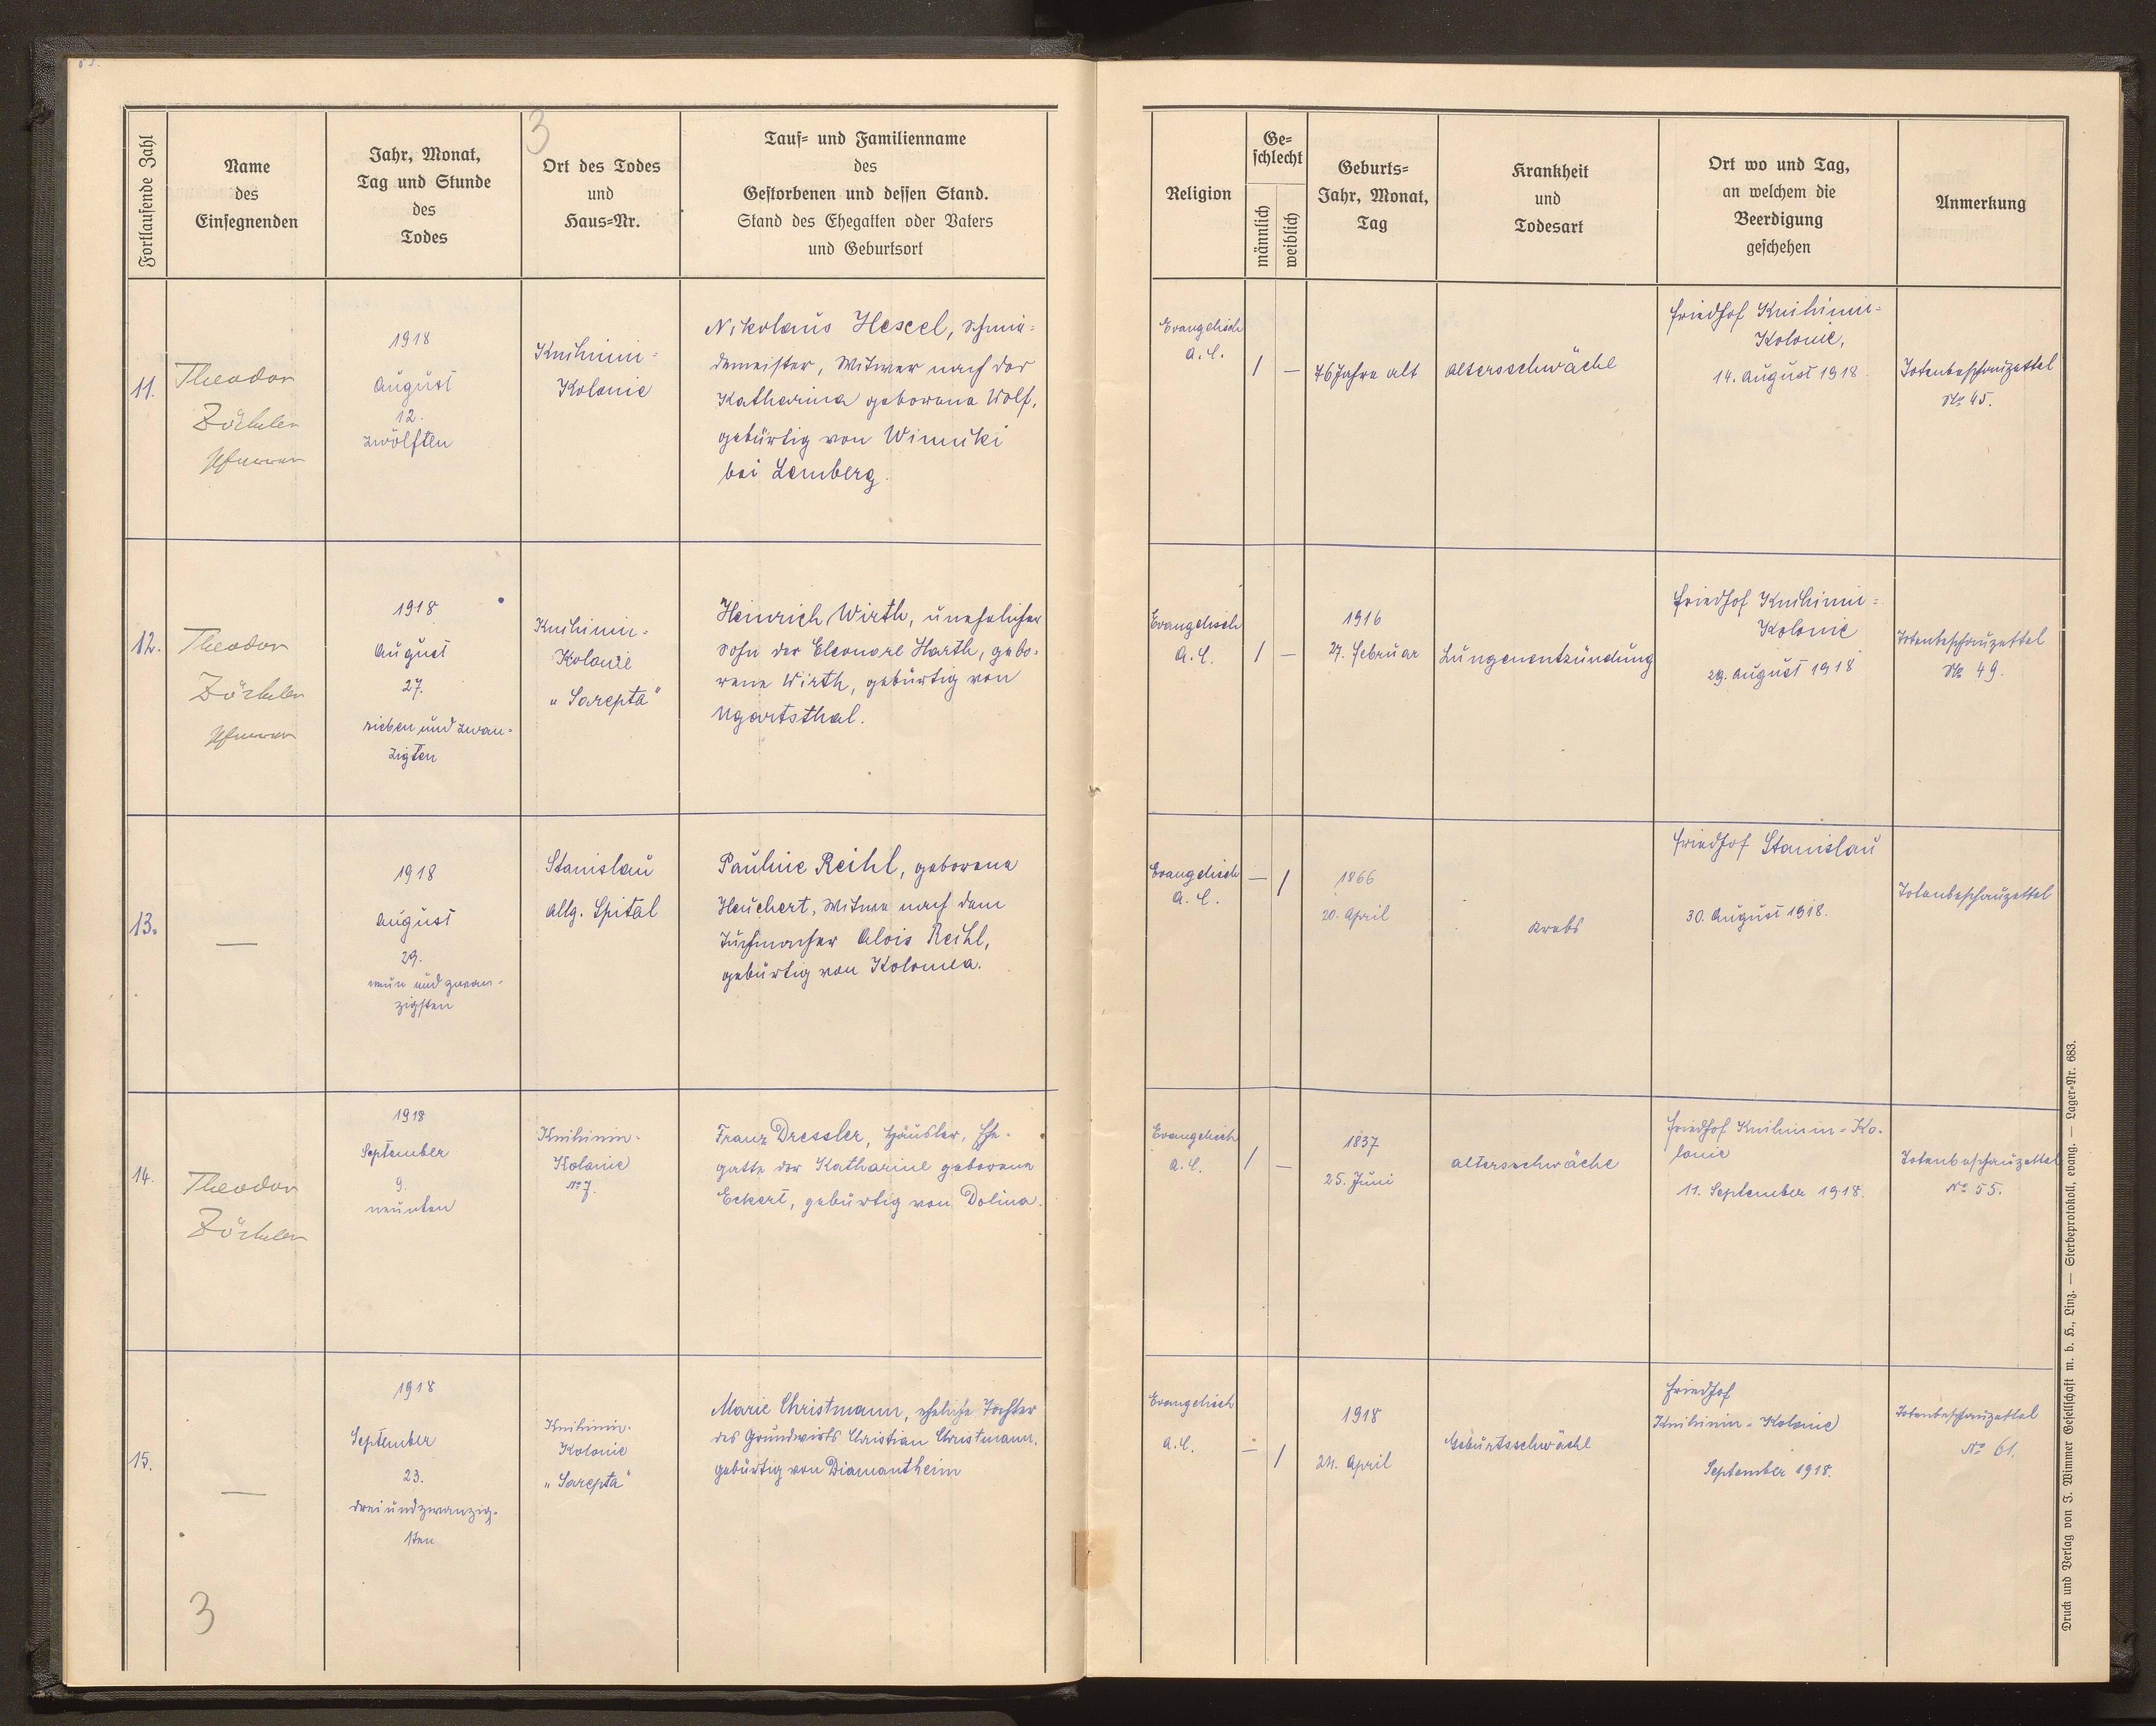 3
Fortlaufende Zahl
Name
des
Einsegnenden
Jahr, Monat,
Tag und Stunde
des
Todes
Ort des Todes
und
Haus=Nr.
Tauf= und Familienname
des
Gestorbenen und dessen Stand.
Stand des Ehegatten oder Vaters
und Geburtsort
Religion
Ge=
schlecht
männlich
weiblich
Geburts=
Jahr, Monat,
Tag
Krankheit
und
Todesart
Ort wo und Tag,
an welchem die
Beerdigung
geschehen
Anmerkung
11.
Theodor
Zöckler
Pfarrer
1918
August
12.
zwölften
Knihinin=
Kolonie
Nikolaus Hescel, Schmie=
demeister, Witwer nach der
Katharina geborene Wolf,
gebürtig von Winniki
bei Lemberg.
Evangelisch
A.C.
1
—
76 Jahre alt
Altersschwäche
Friedhof Knihinin=
Kolonie,
14. August 1918.
Totenbeschauzettel
No 45.
12.
Theodor
Zöckler
Pfarrer
1918
August
27.
sieben und zwan=
zigten
Knihinin=
Kolonie
"Sarepta"
Heinrich Wirth, unehelicher
Sohn der Eleonore Harth, gebo=
rene Wirth, gebürtig von
Ugartsthal.
Evangelisch
A.C.
1
—
1916
27. Februar
Lungenentzündung
Friedhof Knihinin=
Kolonie
29. August 1918
Totenbeschauzettel
No 49.
13.
—
1918
August
29.
neun und zwan=
zigsten
Stanislau
Allg. Spital
Pauline Reihl, geborene
Heuchert, Witwe nach dem
Tuchmacher Alois Reihl,
gebürtig von Kolomea.
Evangelisch
A.C.
—
1
1866
20. April
Krebs
Friedhof Stanislau
30. August 1918.
Totenbeschauzettel
14.
Theodor
Zöckler
1918
September
9.
neunten
Knihinin=
Kolonie
No 7.
Franz Dressler, Häusler, Ehe=
gatte der Katharine geborene
Eckert, gebürtig von Dolina.
Evangelisch
A.C.
1
—
1837
25. Juni
Altersschwäche
Friedhof Knihinin=Ko=
lonie
11. September 1918.
Totenbeschauzettel
No 55.
15.
—
1918
September
23.
dreiundzwanzig=
sten
Knihinin=
Kolonie
"Sarepta"
Marie Christmann, eheliche Tochter
des Grundwirts Christian Christmann,
gebürtig von Diamantheim
Evangelisch
A.C.
—
1
1918
24. April
Geburtsschwäche
Friedhof
Knihinin=Kolonie
September 1918.
Totenbeschauzettel
No 61.
3
Druck und Verlag von J. Wimmer Gesellschaft m. b. H., Linz. — Sterbeprotokoll, evang. — Lager=Nr. 683.